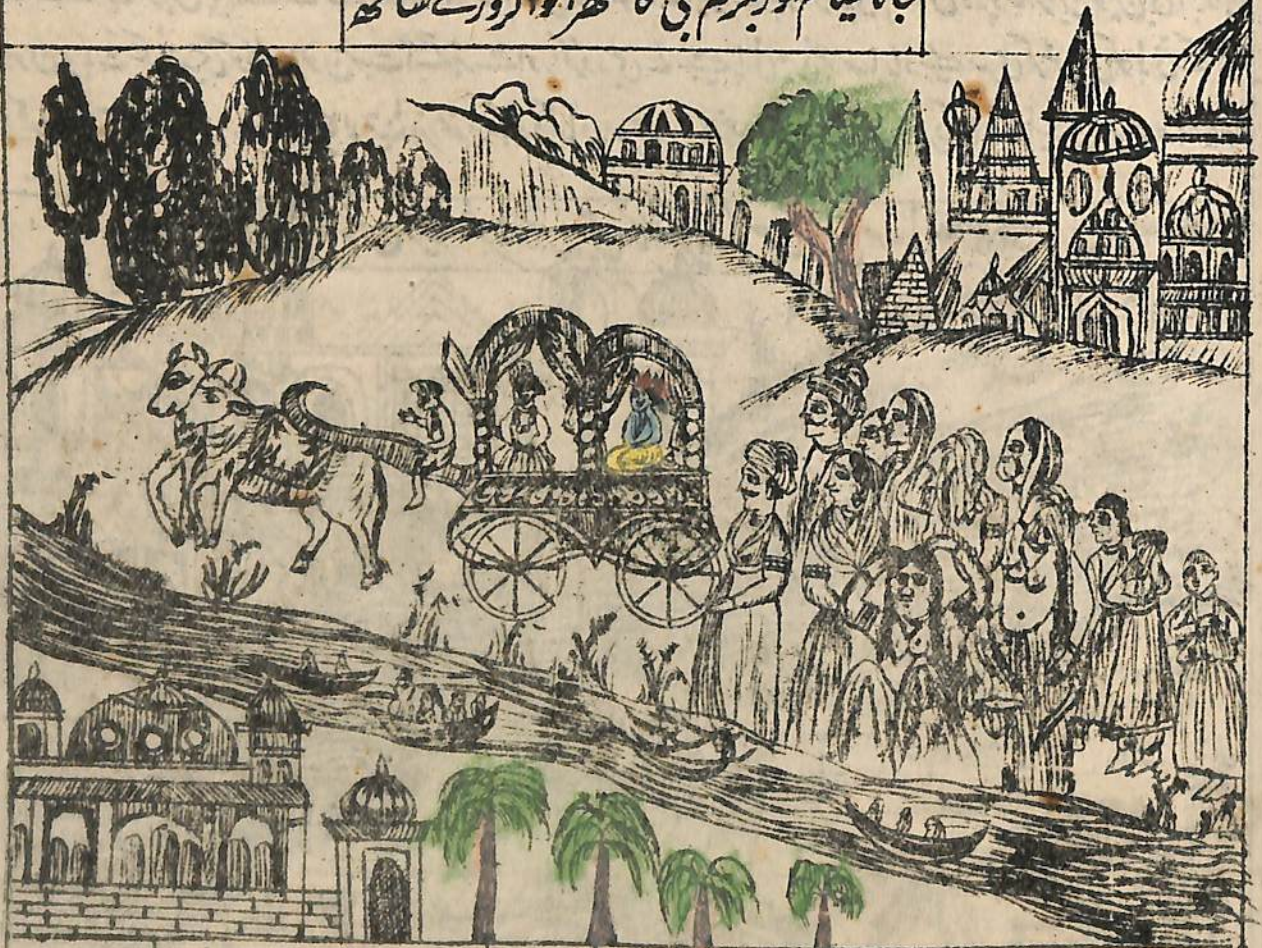 جانا سیام اور بلرام جی کا متھرا کو اکرور کے ساتھ